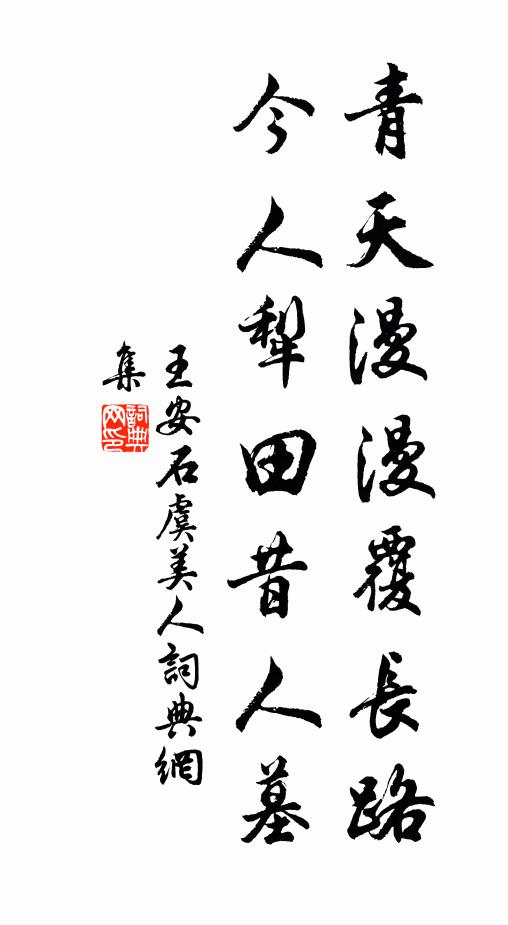 青天漫漫覆長路
今人犁田昔人墓
王安石虞美人詞典網
集
詞典
网印